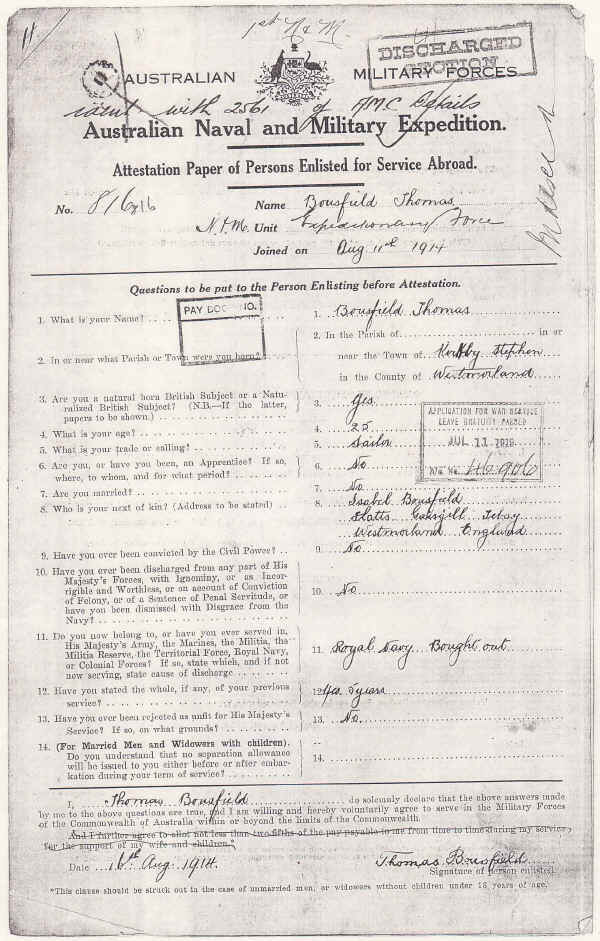 11
1st N & M.
DISCHARGED
SECTION
AUSTRALIAN MILITARY FORCES
with 2561 of AMC Details
Australian Naval and Military Expedition.
Attestation Paper of Persons Enlisted for Service Abroad.
No. 816 Name Bousfield Thomas
N.&M. Unit Expeditionary Force
Joined on Aug 11th 1914
Questions to be put to the Person Enlisting before Attestation.
PAY DOC NO.
1. What is your Name? 1. Bousfield Thomas
2. In or near what Parish or Town were you born? 2. In the Parish of in or
near the Town of Kirkby Stephen
in the County of Westmorland
3. Are you a natural born British Subject or a Natu-
ralized British Subject? (N.B.—If the latter,
papers to be shown.) 3. Yes
APPLICATION FOR WAR SERVICE
LEAVE GRATUITY PASSED
JUL 11
4. What is your age? 4. 25
5. What is your trade or calling? 5. Sailor
6. Are you, or have you been, an Apprentice? If so,
where, to whom, and for what period? 6. No
7. Are you married? 7. No
8. Who is your next of kin? (Address to be stated) 8. Isabel Bousfield
Flatts Gaisgill Tebay
Westmorland England
9. Have you ever been convicted by the Civil Power? 9. No
10. Have you ever been discharged from any part of His
Majesty's Forces, with Ignominy, or as Incor-
rigible and Worthless, or on account of Conviction
of Felony, or of a Sentence of Penal Servitude, or
have you been dismissed with Disgrace from the
Navy? 10. No
11. Do you now belong to, or have you ever served in,
His Majesty's Army, the Marines, the Militia, the
Militia Reserve, the Territorial Force, Royal Navy,
or Colonial Forces? If so, state which, and if not
now serving, state cause of discharge 11. Royal Navy Bought out
12. Have you stated the whole, if any, of your previous
service? 12. Yes 5 years
13. Have you ever been rejected as unfit for His Majesty's
Service? If so, on what grounds? 13. No
14. (For Married Men and Widowers with children).
Do you understand that no separation allowance
will be issued to you either before or after embar-
kation during your term of service? 14.
I, Thomas Bousfield do solemnly declare that the above answers made
by me to the above questions are true, and I am willing and hereby voluntarily agree to serve in the Military Forces
of the Commonwealth of Australia within or beyond the limits of the Commonwealth.
And I further agree to allot not less than two-fifths of the pay payable to me from time to time during my service
for the support of my wife and children.*
Date 16th Aug. 1914. Thomas Bousfield
Signature of person enlisted.
*This clause should be struck out in the case of unmarried men, or widowers without children under 18 years of age.